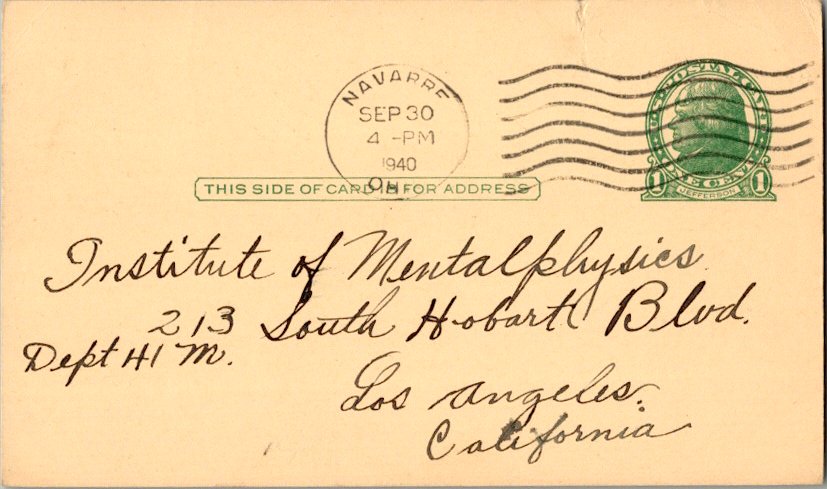 NAVARRE
SEP 30
4 -PM
1940
OH
U.S. POSTAL CARD
ONE CENT
1 JEFFERSON 1
THIS SIDE OF CARD IS FOR ADDRESS
Institute of Mentalphysics
213 South Hobart Blvd.
Dept H1 M.
Los Angeles.
California